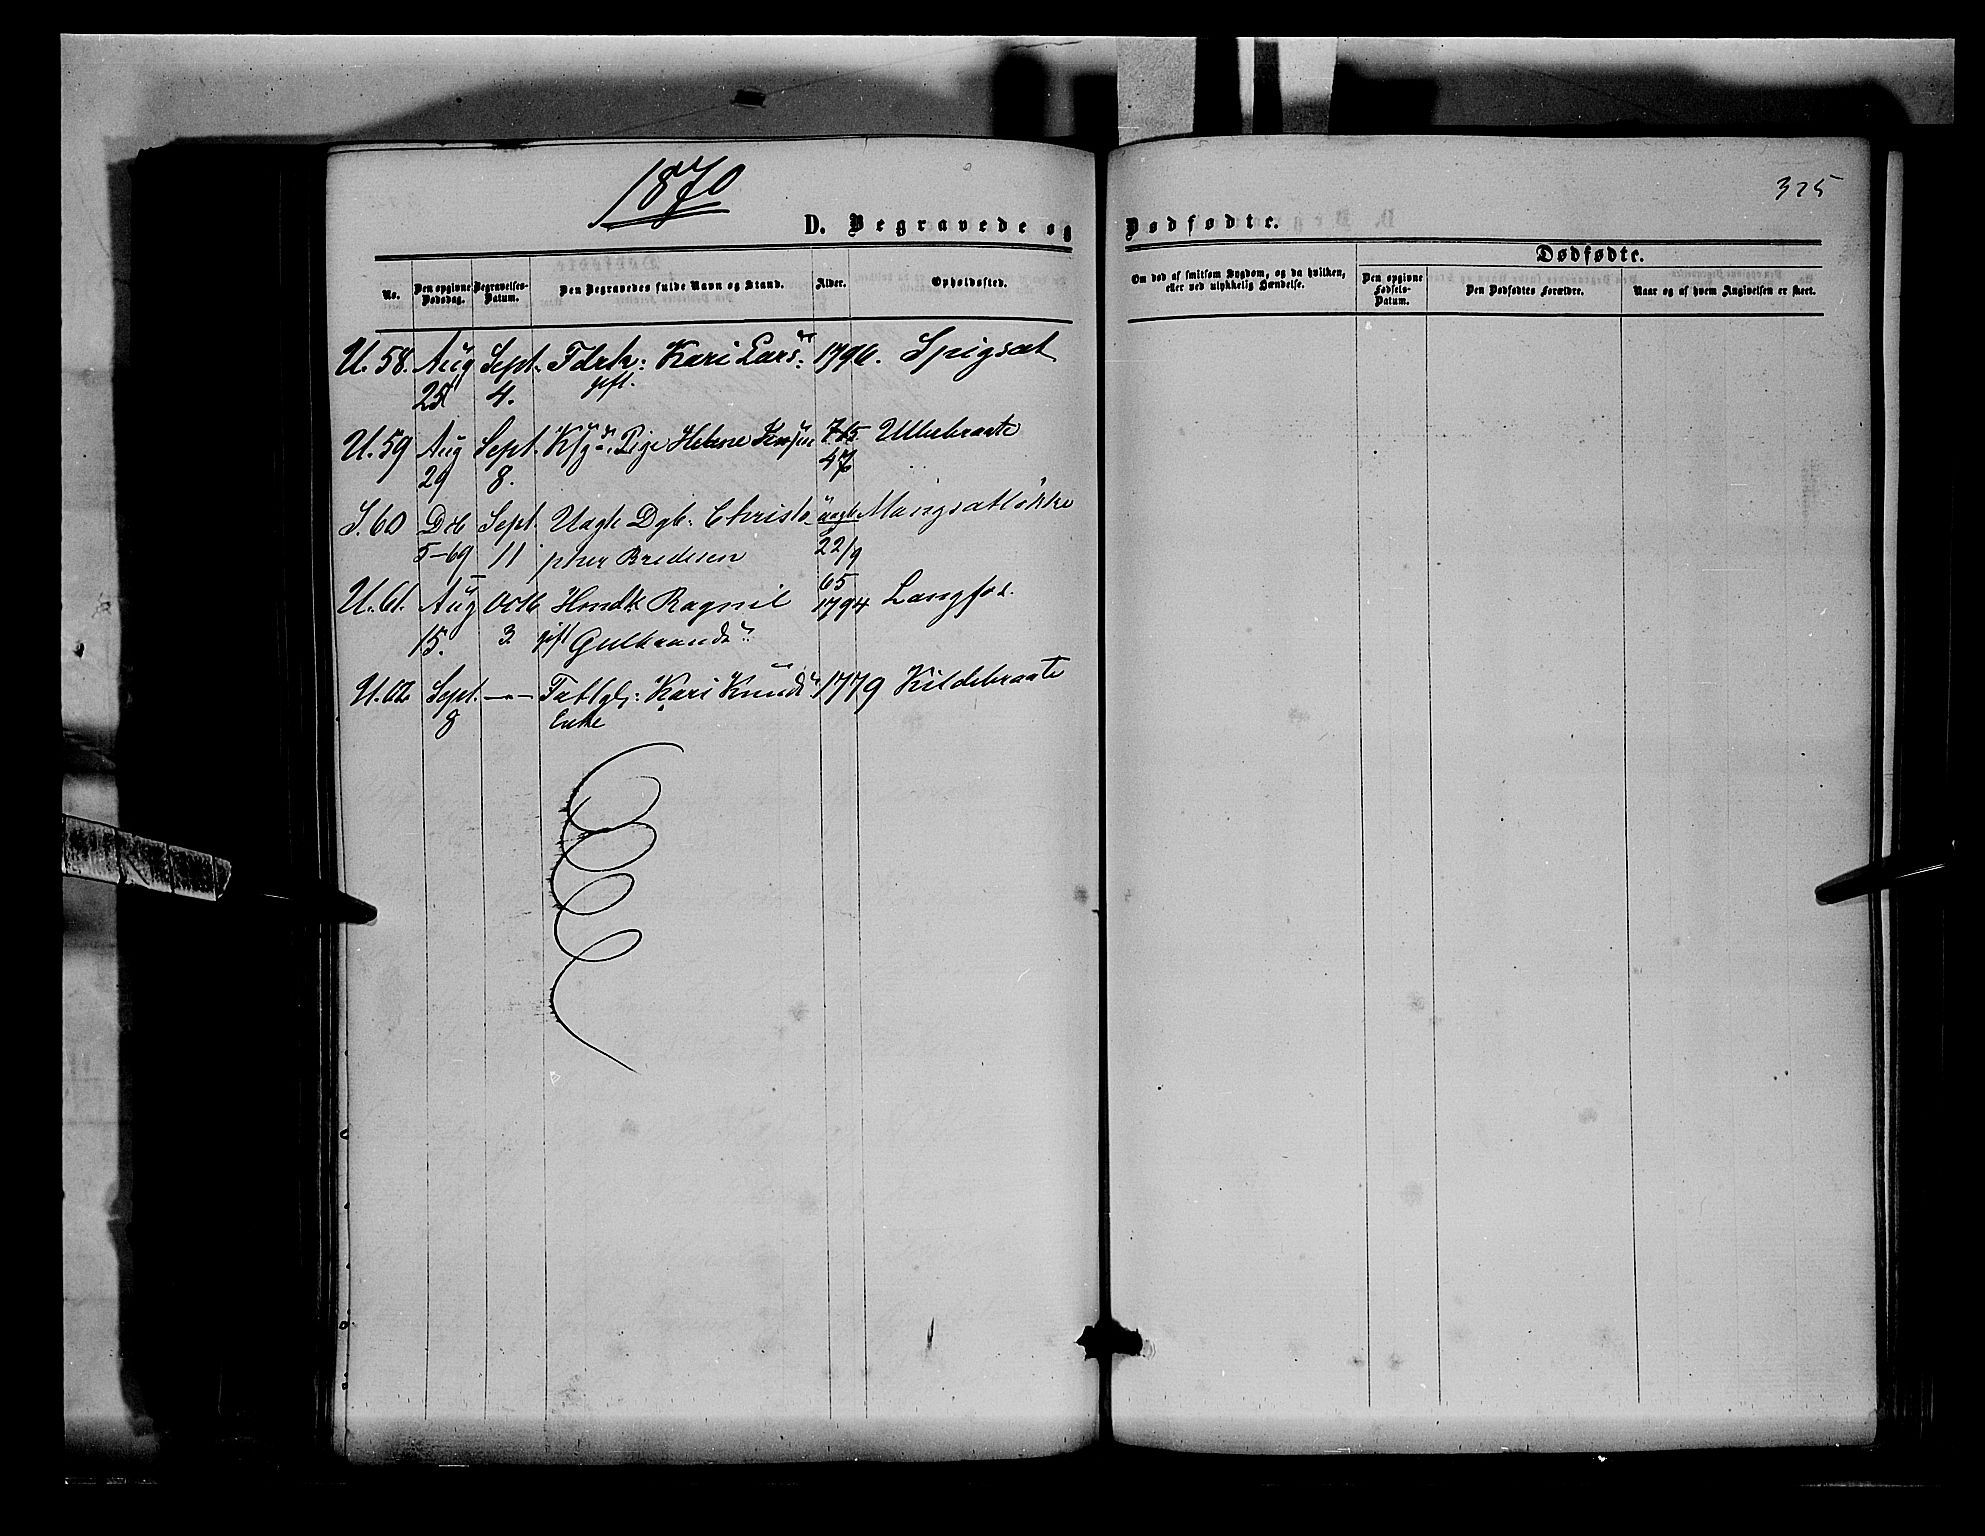 1870
325
D. Begravede og Dødfødte.
No.
Den opgivne Dødsdag.
Begravelses-Datum.
Den Begravedes fulde Navn og Stand.
Alder.
Opholdssted.
Om død af smitsom Sygdom, og da hvilken, eller ved ulykkelig Hændelse.
Dødfødte.
Den opgivne Fødsels-Datum.
Den Dødfødtes Forældre.
Naar og af hvem Angivelsen er skeet.
U. 58. Aug Sept. Fdrk: Kari Lars: 1796. Spigsæt
4. gift.
U. 59 Aug Sept. Pige Helene
29 8. 47
S. 60 Dcb Sept. Uægte Dgb. Christo ûægte
5-69 11 pher Bredesen 22/9
65
U. 61. Aug Octb Ragnil 1794
15. 3. gift Gulbrands
U. 62 Sept. —"— Kari Knuds 1779 Kildebraate
8 Enke